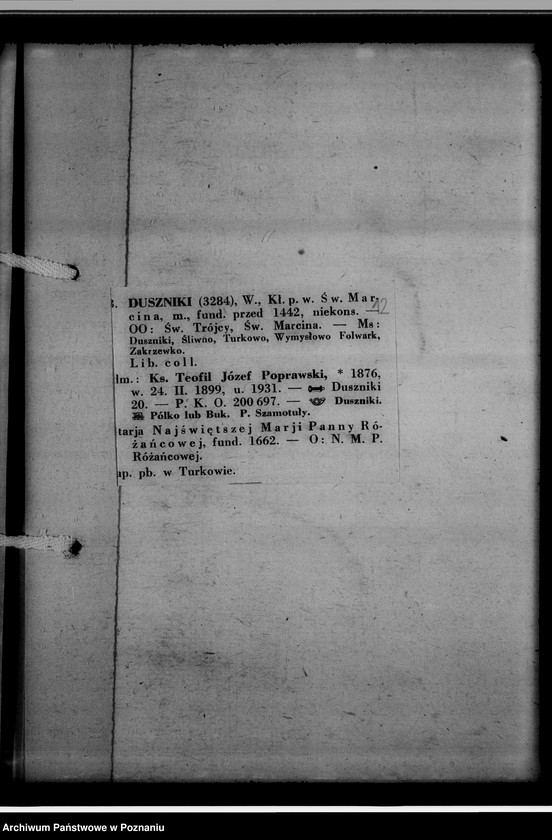 DUSZNIKI (3284), W., Kl. p. w. Św. Mar-
cina, m., fund. przed 1442, niekons. —
12
OO: Św. Trójcy, Św. Marcina. — Ms:
Duszniki, Śliwno, Turkowo, Wymysłowo Folwark,
Zakrzewko.
Lib. coll.
dm.: Ks. Teofil Józef Poprawski, * 1876,
w. 24. II. 1899, u. 1931. — Duszniki
20. — P. K. O. 200 697. — Duszniki.
Pólko lub Buk. P. Szamotuły.
tarja Najświętszej Marji Panny Ró-
żańcowej, fund. 1662. — O: N. M. P.
Różańcowej.
ap. pb. w Turkowie.
Archiwum Państwowe w Poznaniu